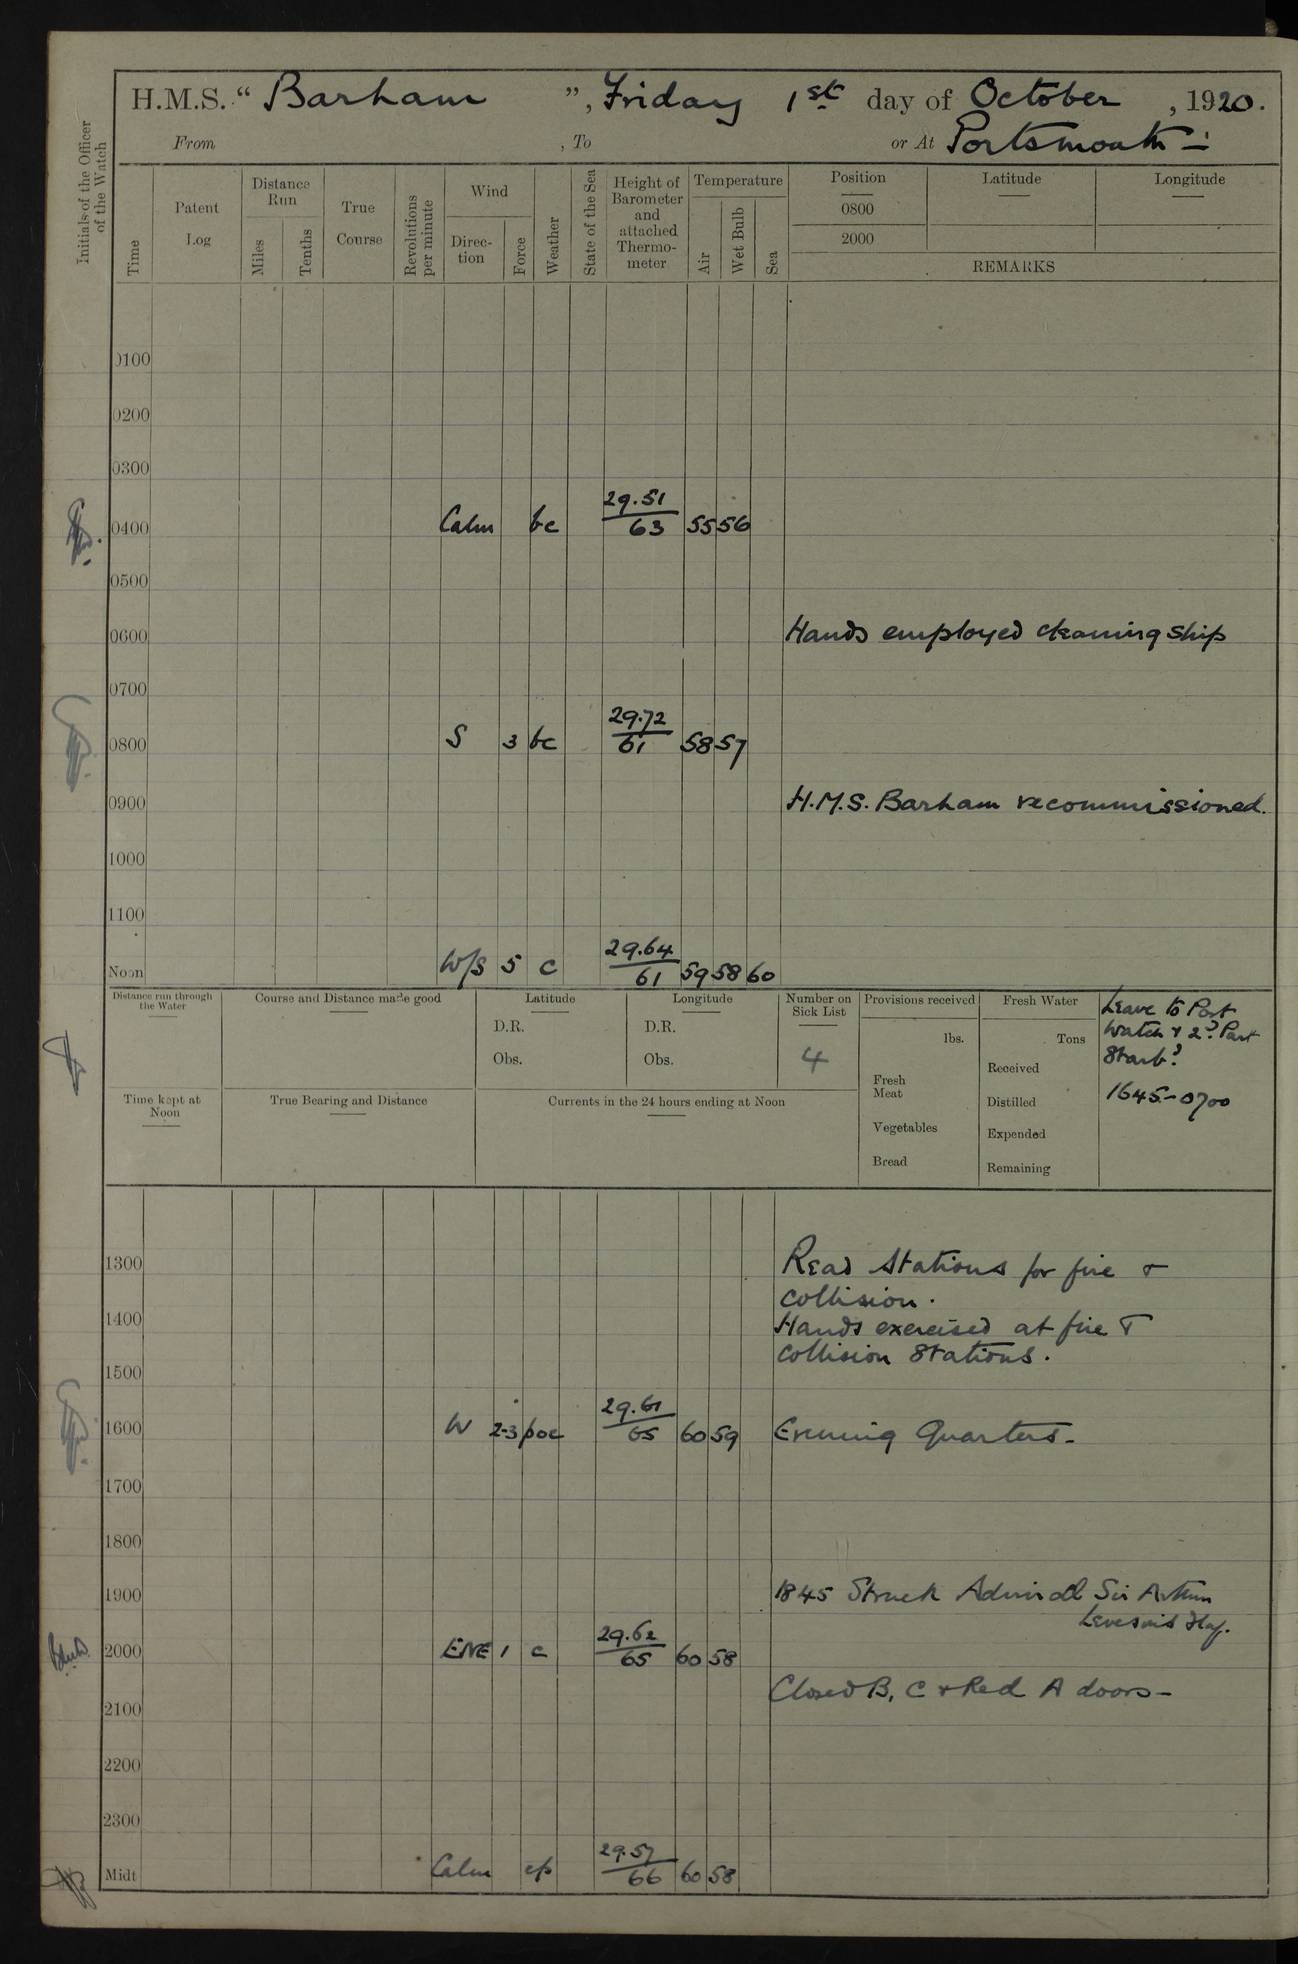 H.M.S. “ Barham ”, Friday 1st day of October , 1920.
From , To or At Portsmouth :-
Initials of the Officer of the Watch
Time
Patent Log
Distance Run
Miles
Tenths
True Course
Revolutions per minute
Wind
Direc-tion
Force
Weather
State of the Sea
Height of Barometer and attached Thermo-meter
Temperature
Air
Wet Bulb
Sea
Position
0800
2000
Latitude
Longitude
REMARKS
0100
0200
0300
0400 Calm bc 29.51 63 55 56
0500
0600 Hands employed cleaning ship
0700
0800 S 3 bc 29.72 61 58 57
0900 H.M.S. Barham recommissioned.
1000
1100
Noon W/S 5 c 29.64 61 59 58 60
Distance run through the Water
Course and Distance made good
Latitude
D.R.
Obs.
Longitude
D.R.
Obs.
Number on Sick List
4
Provisions received
lbs.
Fresh Meat
Vegetables
Bread
Fresh Water
Tons
Received
Distilled
Expended
Remaining
Leave to Port
Watch & 2d Part
Starbd
1645-0700
Time kept at Noon
True Bearing and Distance
Currents in the 24 hours ending at Noon
1300 Read Stations for fire &
collision.
1400 Hands exercised at fire &
Collision Stations.
1500
1600 W 2-3 poc 29.61 65 60 59 Evening Quarters-
1700
1800
1900 1845 Struck Admiral Sir Arthur
Leveson's flag.
2000 ENE 1 c 29.62 65 60 58
Closed B, C & Red A doors-
2100
2200
2300
Midt Calm cp 29.57 66 60 58